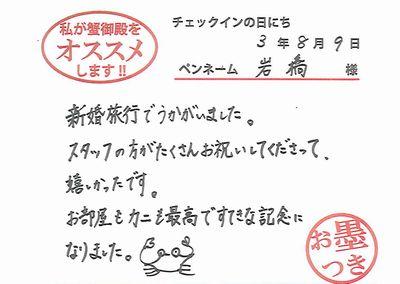 私が蟹御殿を
オススメ
します!!
チェックインの日にち
3 年 8 月 9 日
ペンネーム 岩橋 様
新婚旅行でうかがいました。
スタッフの方がたくさんお祝いしてくださって、
嬉しかったです。
お部屋もカニも最高ですてきな記念に
なりました。
お墨
つき